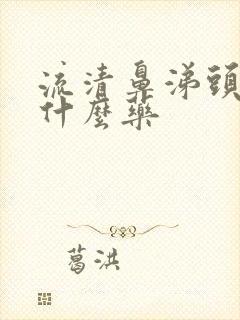 流清鼻涕頭
什麼藥
葛洪